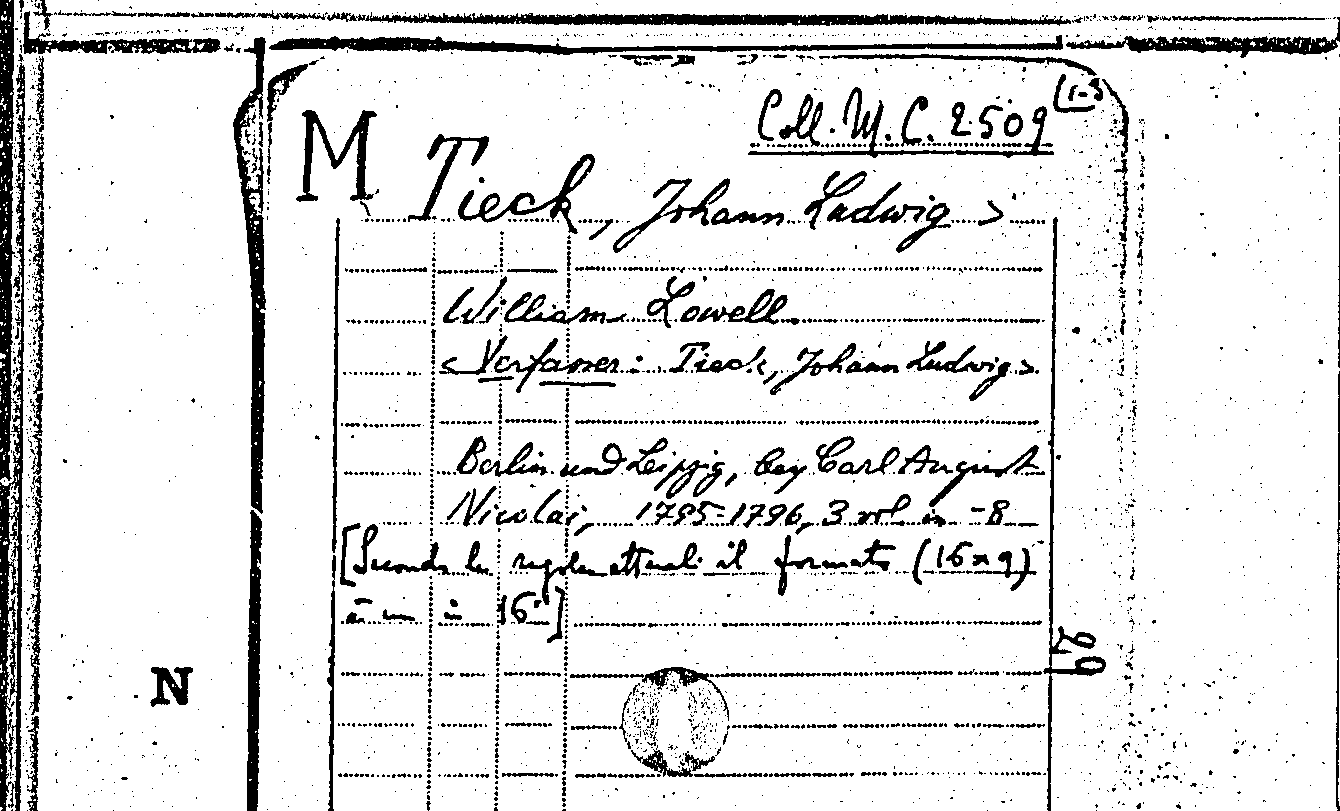 Coll. M. C. 2509 (1-3
M Tieck, Johann Ludwig >
William Lowell.
< Verfasser: Tieck, Johann Ludwig >
Berlin und Leipzig, bey Carl August
Nicolai, 1795-1796, 3 vol. in -8
[Secondo le regole attuali il formato (16 x 9)
è un in 16°]
N